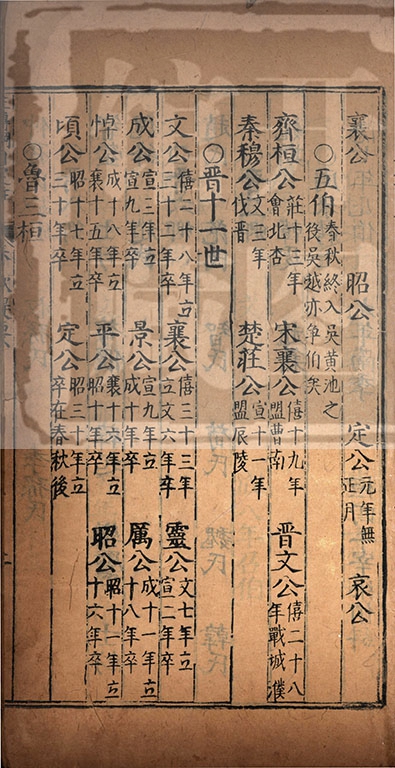 襄公 昭公 定公 元年無正月 哀公
○五伯 春秋終入吳黃池之後吳越亦争伯矣
齊桓公 莊十三年會北杏 宋襄公 僖十九年盟曹南 晋文公 僖二十八年戰城濮
秦穆公 文三年伐晋 楚莊公 宣十一年盟辰陵
○晋十一世
文公 僖二十八年立三十二年卒 襄公 僖三十三年立文六年卒 靈公 文七年立宣二年卒
成公 宣三年立宣九年卒 景公 宣九年立成十年卒 厲公 成十一年立十八年卒
悼公 成十八年立襄十五年卒 平公 襄十六年立昭十年卒 昭公 昭十一年立十六年卒
頃公 昭十七年立三十年卒 定公 昭三十一年立卒在春秋後
○魯三桓